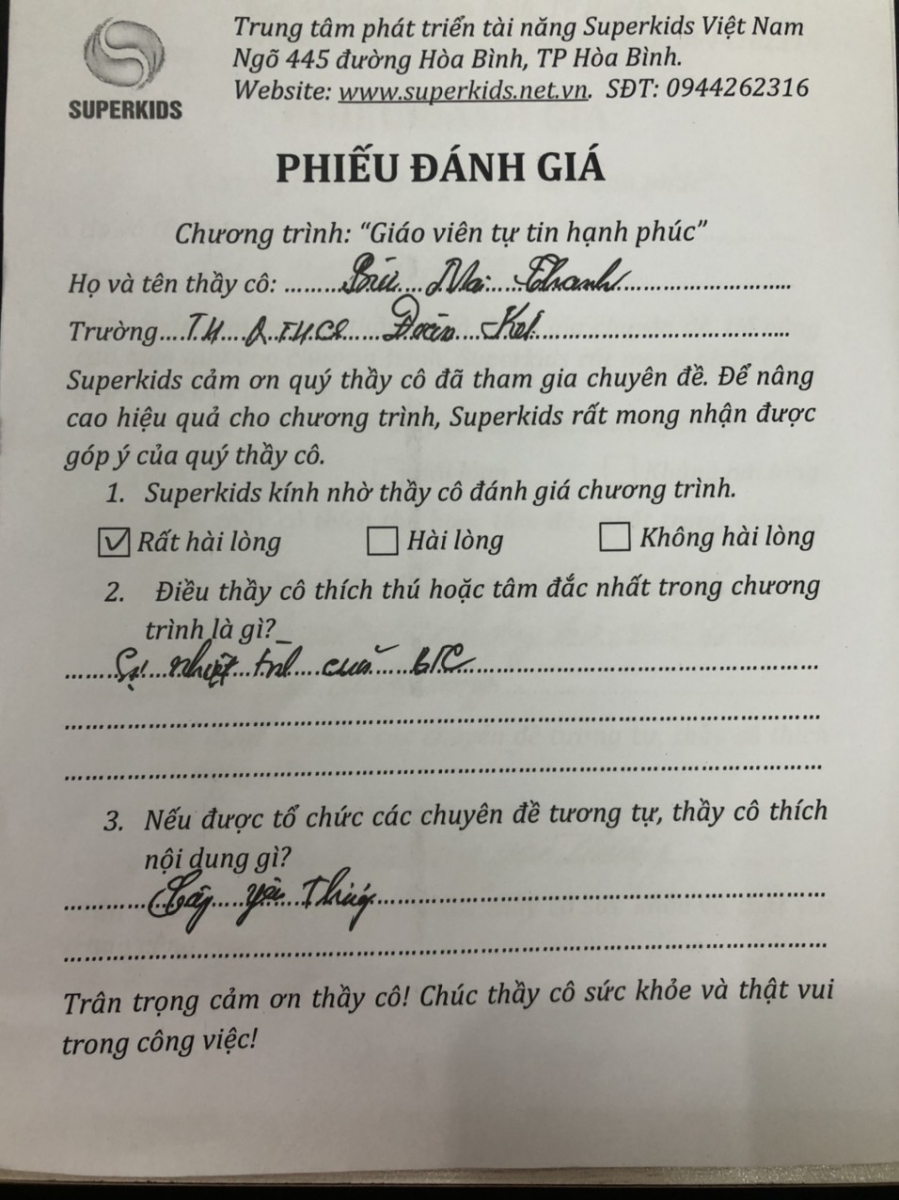 Trung tâm phát triển tài năng Superkids Việt Nam
Ngõ 445 đường Hòa Bình, TP Hòa Bình.
Website: www.superkids.net.vn. SĐT: 0944262316
SUPERKIDS
PHIẾU ĐÁNH GIÁ
Chương trình: “Giáo viên tự tin hạnh phúc”
Họ và tên thầy cô: Thanh
Trường TH & THCS Đoàn Kết
Superkids cảm ơn quý thầy cô đã tham gia chuyên đề. Để nâng
cao hiệu quả cho chương trình, Superkids rất mong nhận được
góp ý của quý thầy cô.
1. Superkids kính nhờ thầy cô đánh giá chương trình.
Rất hài lòng Hài lòng Không hài lòng
2. Điều thầy cô thích thú hoặc tâm đắc nhất trong chương
trình là gì?_
Sự nhiệt tình của BTC
3. Nếu được tổ chức các chuyên đề tương tự, thầy cô thích
nội dung gì?
yêu thương
Trân trọng cảm ơn thầy cô! Chúc thầy cô sức khỏe và thật vui
trong công việc!